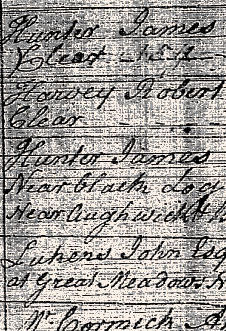 Hunter James
Clear
Harvey Robert
Clear
Hunter James
Near black Log
Near Aughwick
Lukens John Esq
at Great Meadows
Mc Cormick